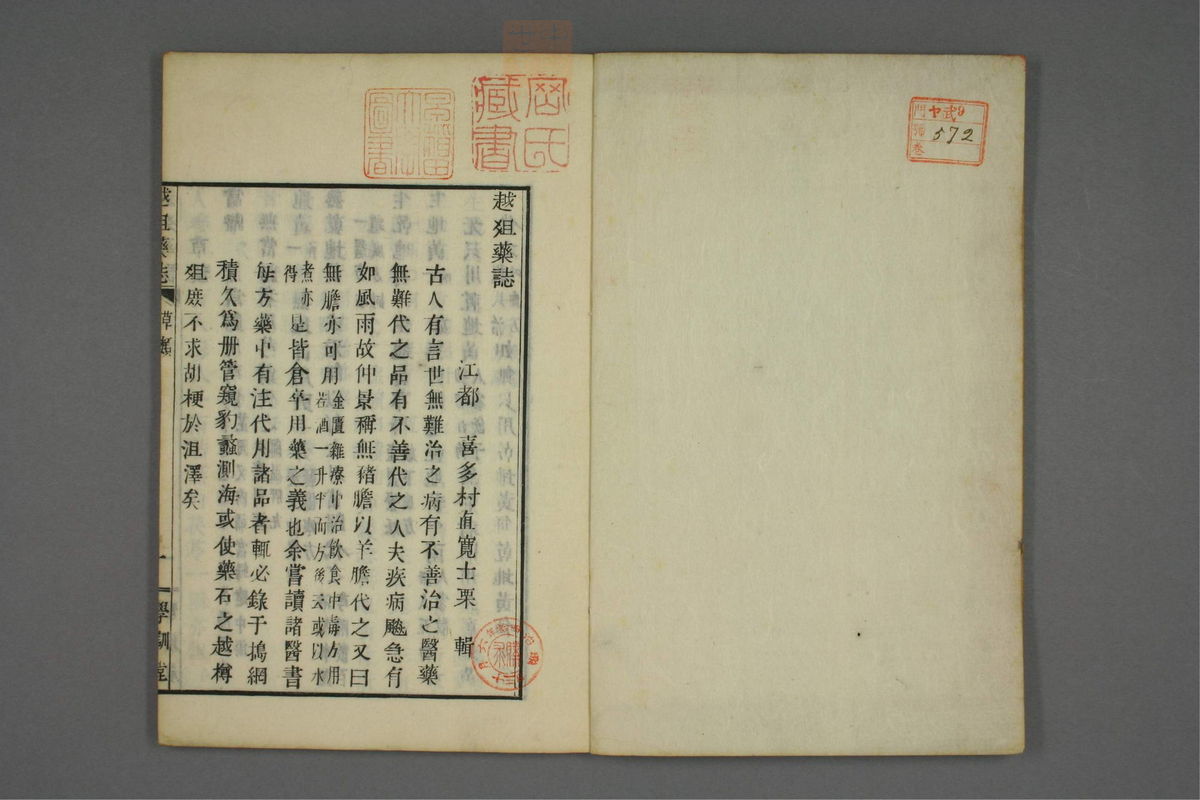 ヤ武9
門
572
卷
岡氏
藏書
越爼藥誌
江都 喜多村直寬士栗 輯
古人有言世無難治之病有不善治之醫藥
無難代之品有不善代之人夫疾病颷急有
如風雨故仲景稱無豬膽以羊膽代之又曰
無膽亦可用金匱雜療中治飮食中毒方用
苦酒一升半而方後云或以水
煮亦
得
是皆倉卒用藥之義也余嘗讀諸醫書
每方藥中有注代用諸品者輒必錄于搗網
積久爲册管窺豹蠡測海或使藥石之越樽
爼庶不求胡梗於沮澤矣
越爼藥誌
草類
一
學訓堂